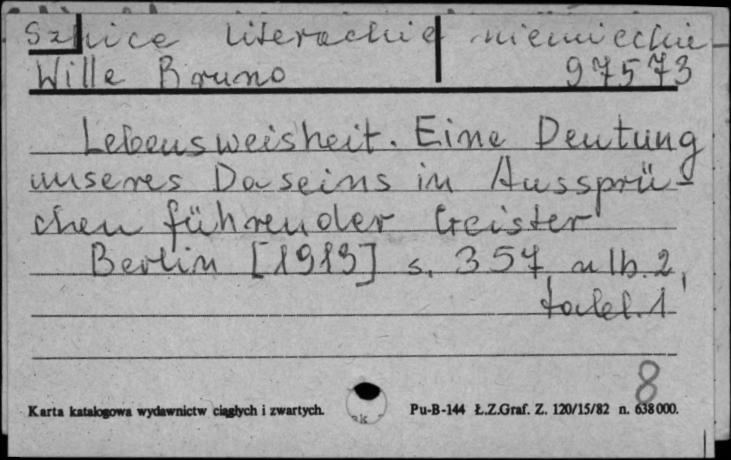 Szkice literackie niemieckie
Wille Bruno 97573
Lebensweisheit. Eine Deutung
unseres Daseins in Aussprü-
chen führender Geister
Berlin [1913] s. 357, alb. 2,
tabl. 1
8
Karta katalogowa wydawnictw ciągłych i zwartych. Pu-B-144 Ł.Z.Graf. Z. 120/15/82 n. 638 000.